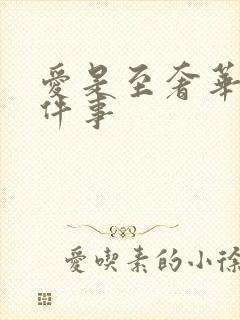 愛是至奢華
件事
愛喫素的小徐